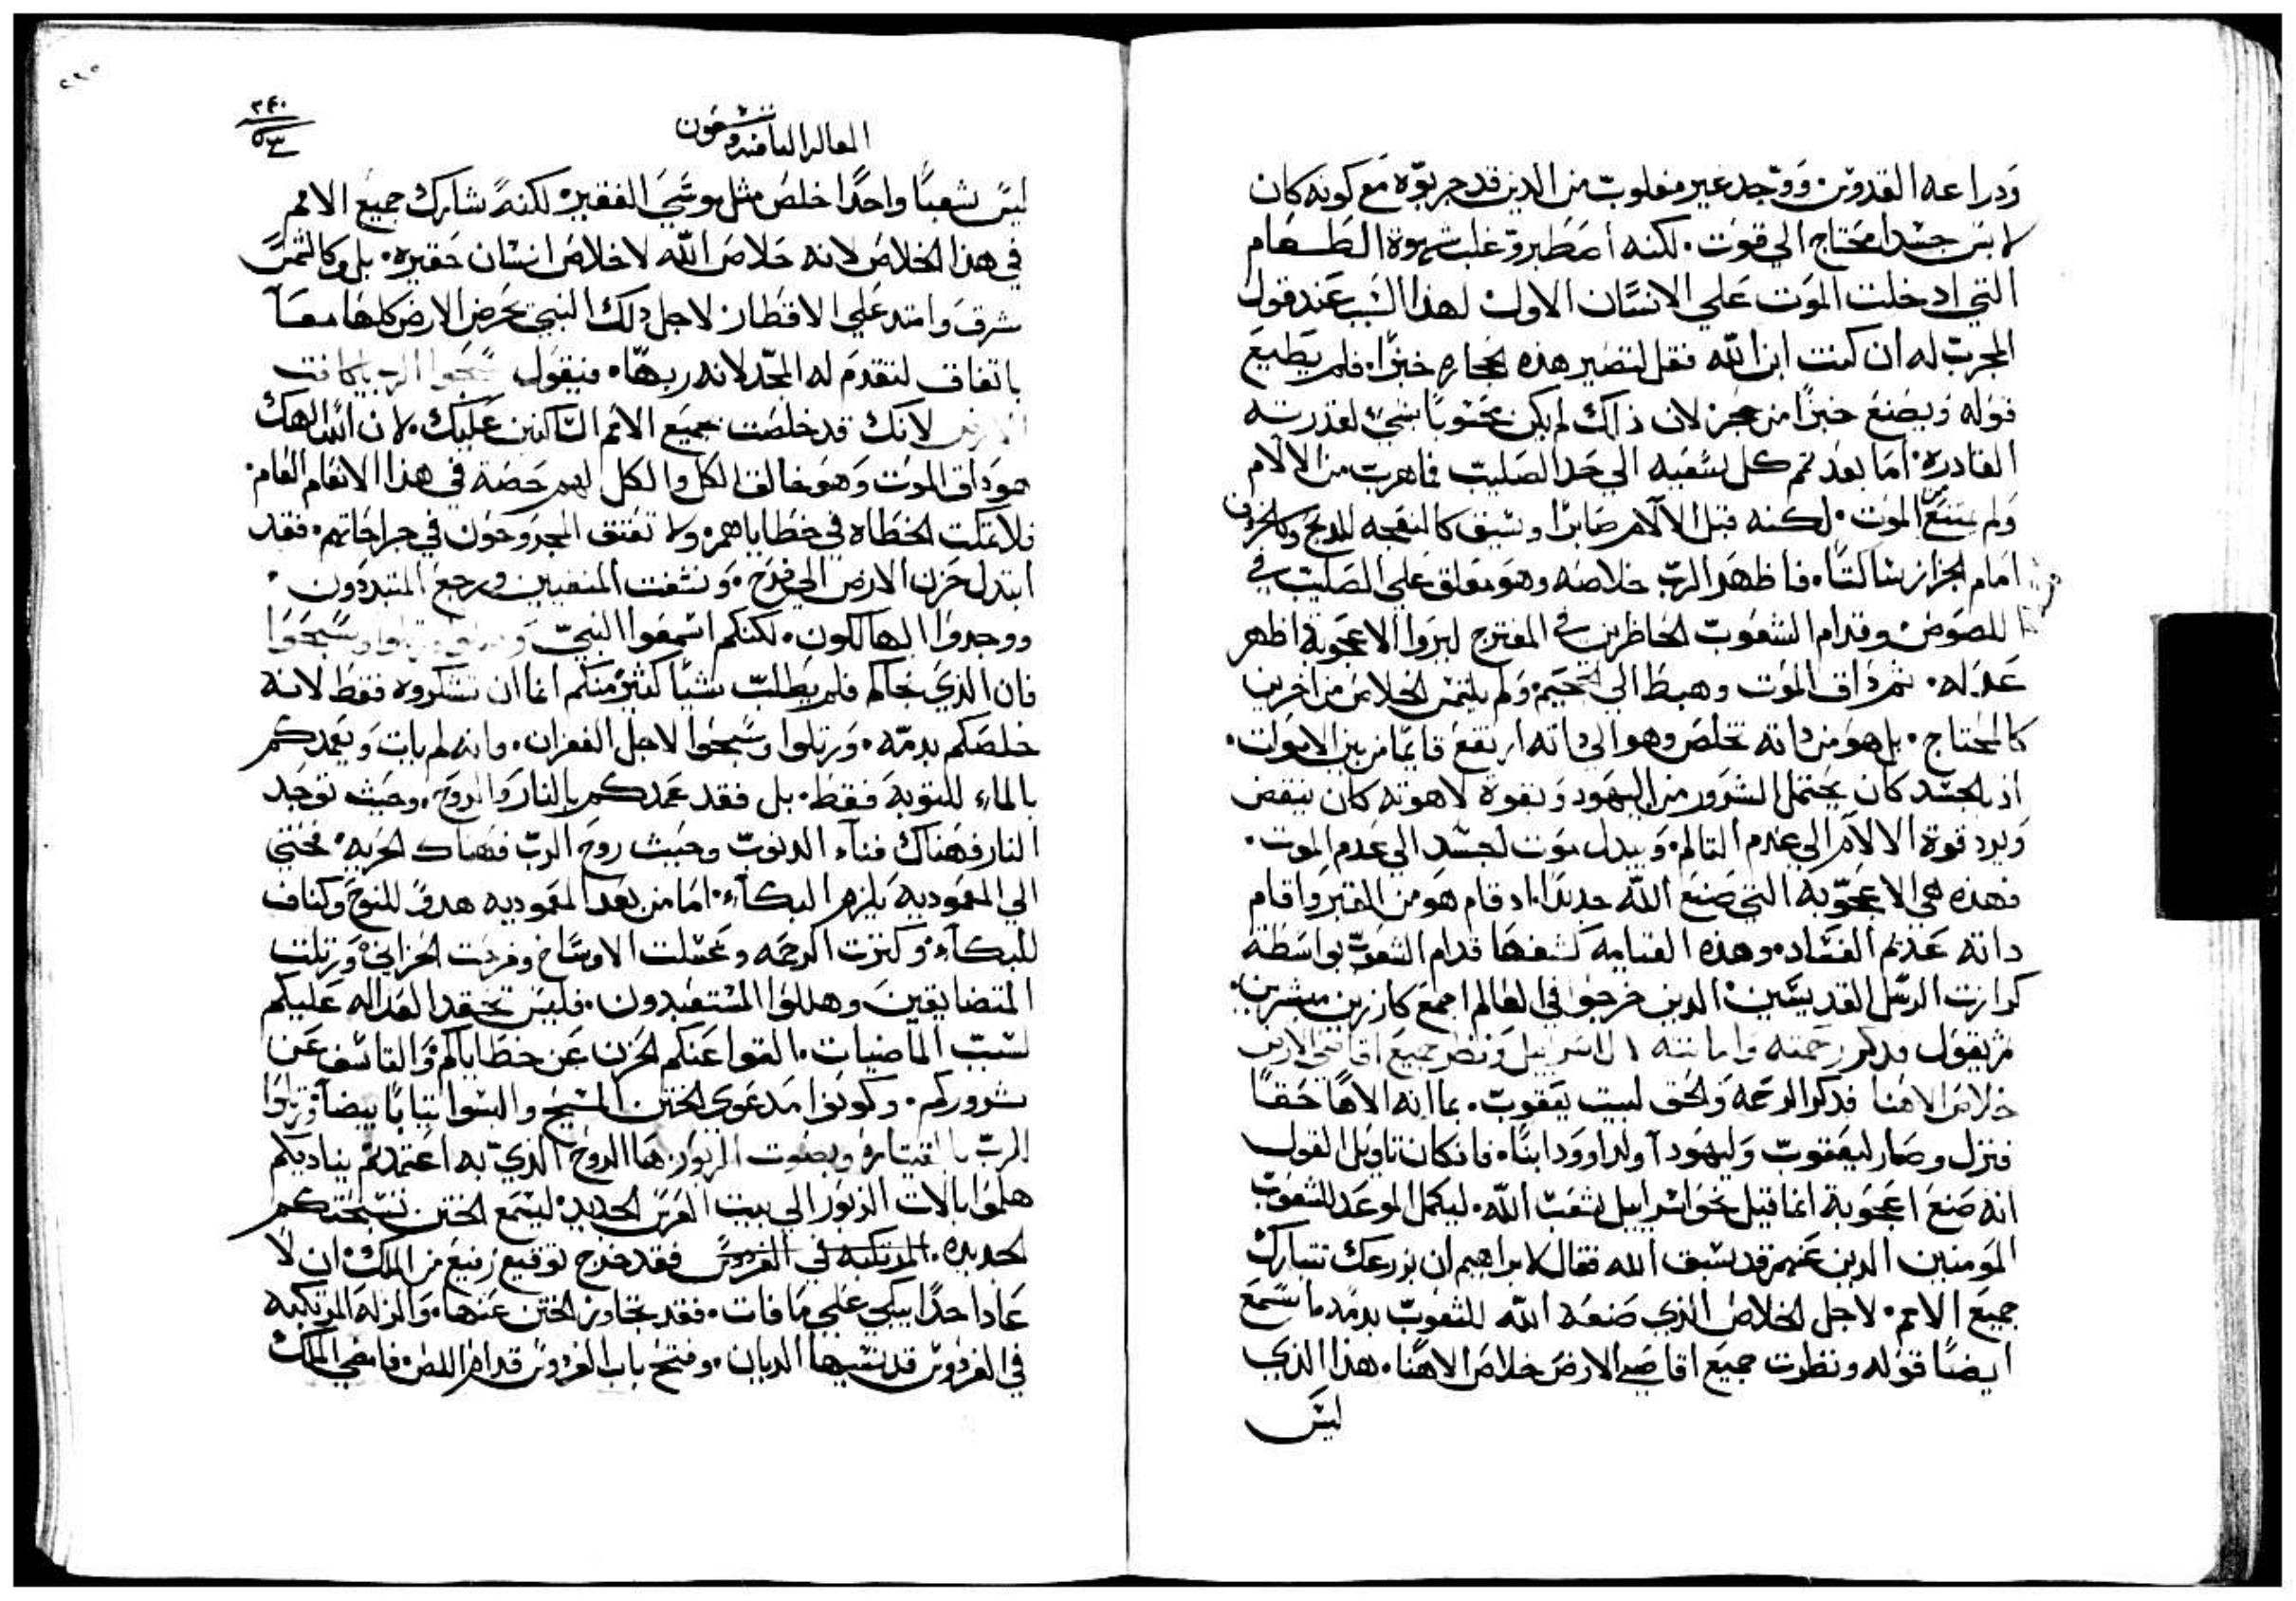 ودراعه القدوس. ووجد غير مغلوب من الدين قد جربوه مع كونه كان
لابس جسدا محتاج الي قوت. لكنه اصطبر وغلب شهوة الطعام
التي ادخلت الموت علي الانسان الاول لهذا السبب عند قول
المجرب له ان كنت ابن الله فقل لتصير هذه الحجاره خبزا. فلم يطيع
قوله ويصنع خبزا من حجر لان ذالك لم يكن محسوبا شي لقدرته
القادره. اما بعد تم كل شعبه الي حد الصليب فما هرب من الالام
ولم يمتنع من الموت. لكنه قبل الالام صابرا وسيق كالنعجه للدبح وكالخروف
امام الجزار ساكتا. فاظهر الرب خلاصه وهو معلق علي الصليب في
اللصوص وقدام الشعوب الحاظرين في المفترج ليروا الاعجوبة اظهر
عدله. ثم داق الموت وهبط الي الجحيم ولم يلتمس الخلاص من اخرين
كالمحتاج. بل هو من داته تخلص وهو الي داته ارتفع قايما من بين الاموات.
اد بالجسد كان يحتمل الشرور من اليهود وبقوة لاهوته كان ينقض
ويرد قوة الالام الي عدم التالم. ويبدل موت الجسد الي عدم الموت.
فهذه هي الاعجوبه التي صنع الله جديدا. اد قام هو من القبر واقام
داته عديم الفساد. وهذه القيامه كشفها قدام الشعوب بواسطة
كرازت الرسل القديسين الدين خرجوا في العالم اجمع كارزين مبشرين.
ثم يقول فدكر رحمته وامانته لال اسراييل ونظر جميع اقاصي الارض
خلاص الاهنا فدكر الرحمه والحق لبيت يعقوب. بما انه الاها حقا
فنزل وصار ليعقوب وليهودا ولداوود ابنا. فانكان تاويل القول
انه صنع اعجوبة انما قيل نحو اسراييل شعب الله. ليكمل الموعد للشعوب
المومنين الدين عنهم قد سبق الله فقال لابراهيم ان بزرعك تتبارك
جميع الامم. لاجل الخلاص الذي صنعه الله للشعوب بدمه ما نسمع
ايضا قوله ونظرت جميع اقاصي الارض خلاص الاهنا. هذا الذي
ليس
المقاله الثامنه وتسعون
٣٤٠
ليس شعبا واحدا خلص مثل موسي الفقير لكنه شارك جميع الامم
في هذا الخلاص لانه خلاص الله لا خلاص انسان حقيره. بل وكالشمس
شرق وامتد علي الاقطار لاجل دلك النبي يحرض الارض كلها معا
باتفاق لتقدم له المجد لانه ربها. فيقول سبحوا الرب يا كافت
الارض لانك قد خلصت جميع الامم الساكنين عليك. لان انسا الهك
هو داق الموت وهو خالق الكل والكل لهم حصة في هذا الانعام العام.
فلا تمكت الخطاه في خطاياهم. ولا تفتق المجروحون في جراحاتهم. فقد
ابتدل حزن الارض الي فرح. ونشفت المنفيين ورجع المتبددون.
ووجدوا الهالكون. لكنكم اسمعوا النبي وسبحوا
فان الذي نجاكم فلم يطلب شيا كثير منكم انما ان تشكروه فقط لانه
خلصكم بدمه. ورتلوا وسبحوا لاجل الغفران. وانه لم يات ويعمدكم
بالماء للتوبة فقط. بل فقد عمدكم بالنار والروح. وحيث توجد
النار فهناك فناء الدنوب وحيث روح الرب فهناك الحريه. فحتي
الي المعموديه يلزم البكاء. اما من بعد المعموديه هدف للنوح وكفاف
للبكاء. وكنزت الرحمه وغسلت الاوساخ وفرحت الحزاني ورتلت
المتضايقين وهللوا المستعبدون. فليس تحقد العداله عليكم
لسبب الماضيات. القوا عنكم الحزن عن خطاياكم والتاسف عن
شروركم. وكونوا مدعوي الختن المسيح والبسوا تيابا بيضا ورتلوا
للرب بالقيتاره وبصوت الزبور. هنا الروح الذي به اعتمدتم يناديكم
هلموا بالات الزبور الي بيت العرس الجديد. ليسمع الختن تسبحتكم
الجديده. المرتكبه في الفردوس فقد خرج توقيع رفيع من الملك ان لا
عاد احدا يبكي علي ما فات. فقد تجاوز الختن عنها. والزله المرتكبه
في الفردوس قد نسيها الديان. وفتح باب الفردوس قدام اللص. فامضي الملك